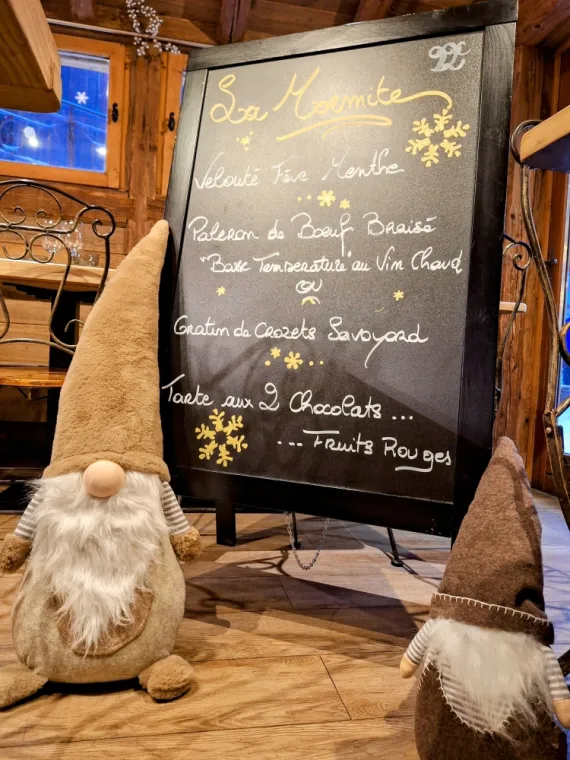 22
La Marmite
Velouté Fève Menthe
Paleron de Bœuf Braisé
"Basse Température" au Vin Chaud
ou
Gratin de Crozets Savoyard
Tarte aux 2 Chocolats ...
... Fruits Rouges